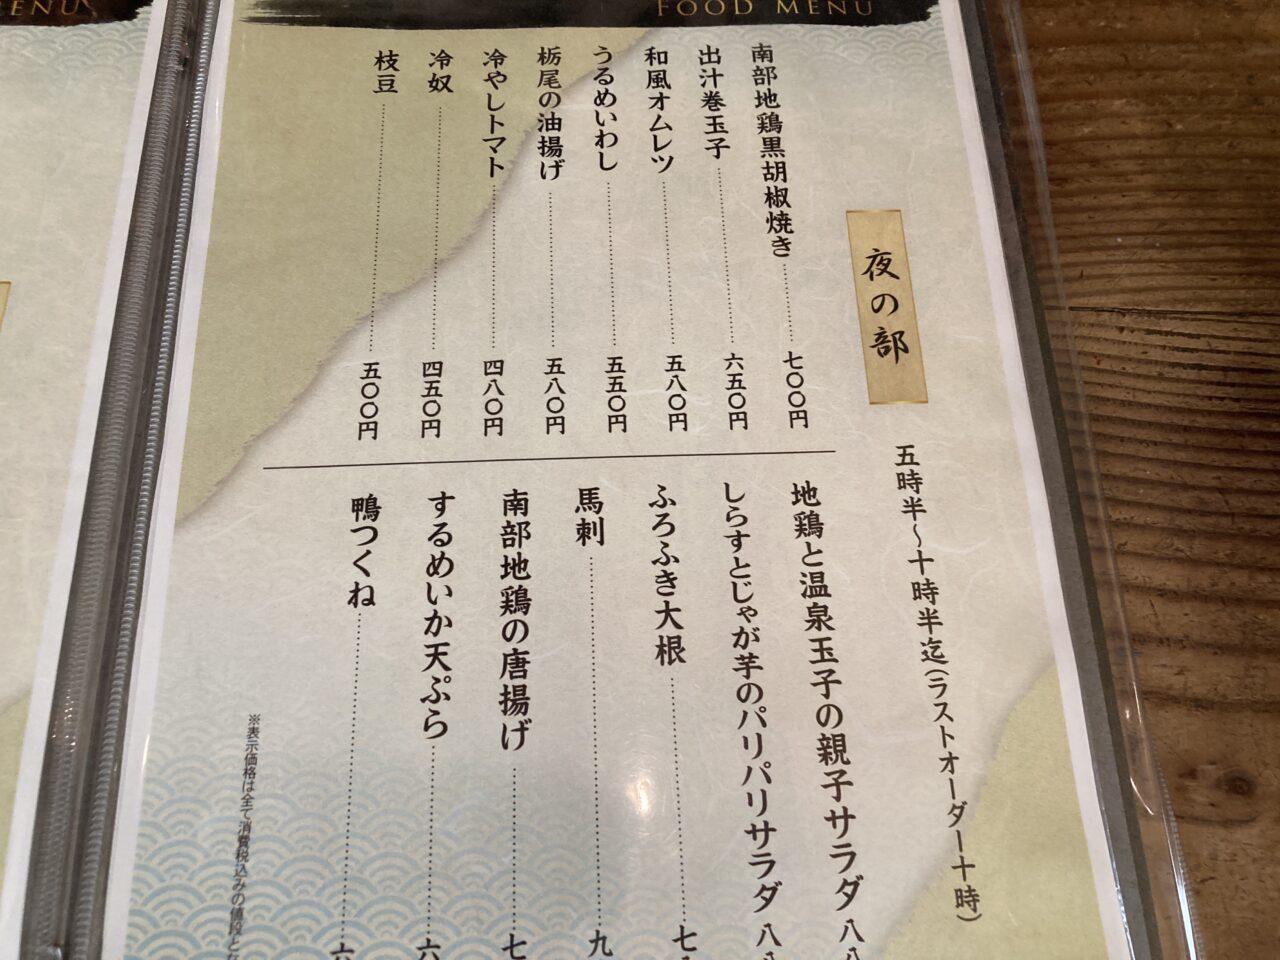 ENU
FOOD MENU
夜の部
五時半〜十時半迄(ラストオーダー十時)
南部地鶏黒胡椒焼き 七〇〇円
出汁巻玉子 六五〇円
和風オムレツ 五八〇円
うるめいわし 五五〇円
栃尾の油揚げ 五八〇円
冷やしトマト 四八〇円
冷奴 四五〇円
枝豆 五〇〇円
地鶏と温泉玉子の親子サラダ 八八
しらすとじゃが芋のパリパリサラダ 八
ふろふき大根 七
馬刺 九
南部地鶏の唐揚げ 七
するめいか天ぷら 六
鴨つくね 六
※表示価格は全て消費税込みの値段とな